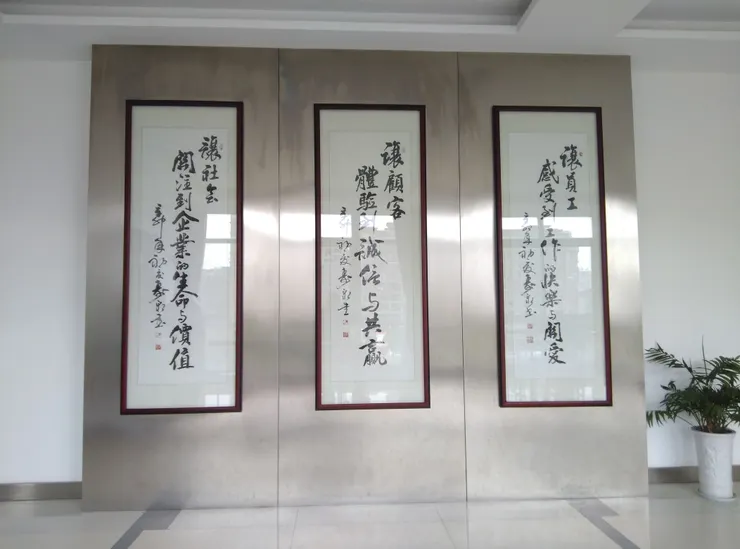 讓員工
感受到工作的快樂與關愛
讓顧客
體驗到誠信与共贏
讓社会
關注到企業的生命与價值